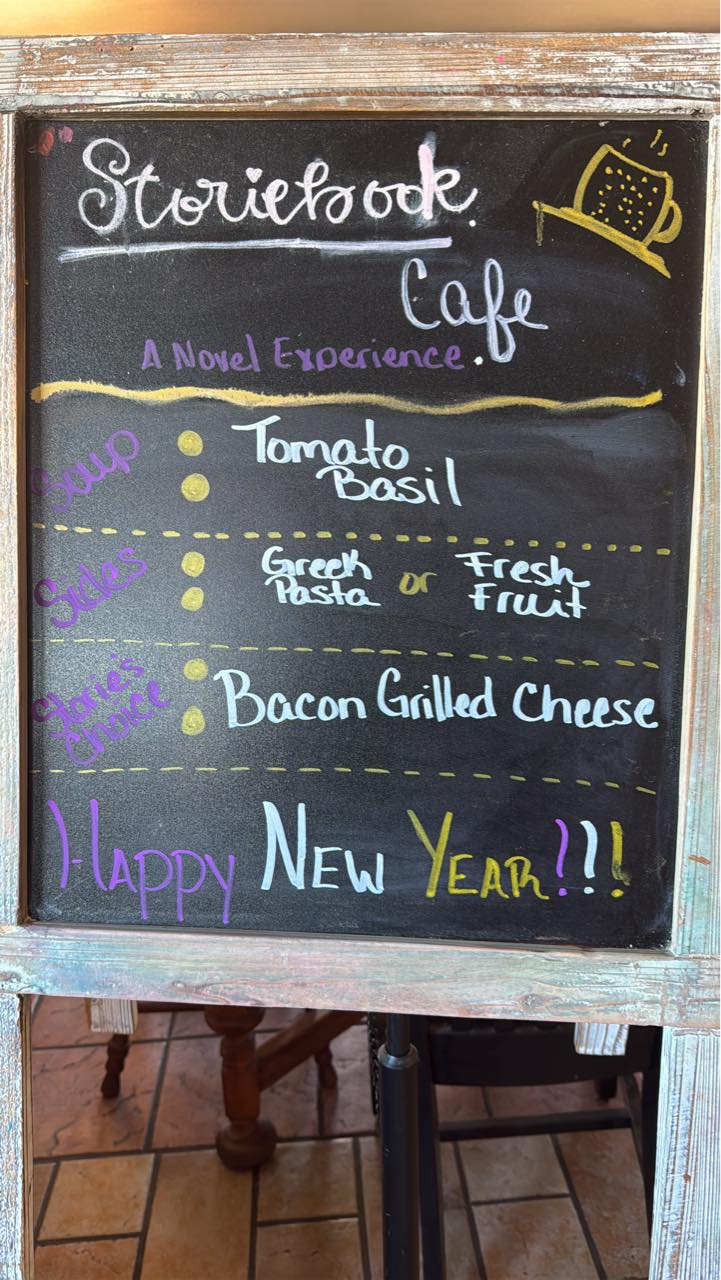 Storiebook
Cafe
A Novel Experience.
Soup : Tomato
Basil
Sides : Greek Pasta or Fresh Fruit
Storie's Choice : Bacon Grilled Cheese
HAPPY NEW YEAR!!!